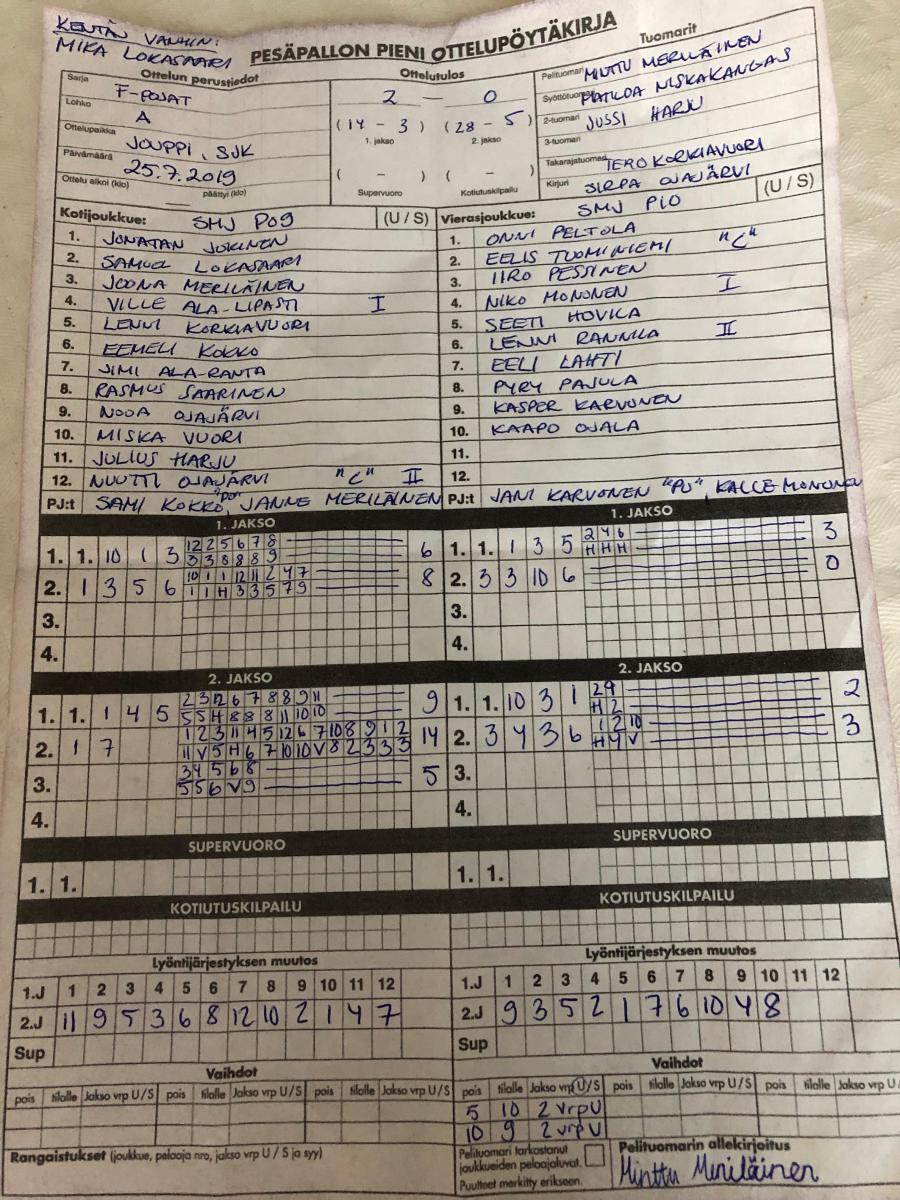 KENTÄN VANHIN:
MIKA LOKASAARI
PESÄPALLON PIENI OTTELUPÖYTÄKIRJA
Ottelun perustiedot
Sarja F-POJAT
Lohko A
Ottelupaikka JOUPPI, SJK
Päivämäärä 25.7.2019
Ottelu alkoi (klo) päättyi (klo)
Ottelutulos
2 - 0
(14 - 3) (28 - 5)
1. jakso 2. jakso
( - ) ( - )
Supervuoro Kotiutuskilpailu
Tuomarit
Pelituomari MINTTU MERILÄINEN
Syöttötuomari MATILDA NISKAKANGAS
2-tuomari JUSSI HARJU
3-tuomari
Takarajatuomari TERO KORKIAVUORI
Kirjuri SIRPA OJAJÄRVI
Kotijoukkue: SMJ P09 (U / S)
1. JONATAN JOKINEN
2. SAMUEL LOKASAARI
3. JOONA MERILÄINEN
4. VILLE ALA-LIPASTI I
5. LENNI KORKIAVUORI
6. EEMELI KOKKO
7. JIMI ALA-RANTA
8. RASMUS SAARINEN
9. NOOA OJAJÄRVI
10. MISKA VUORI
11. JULIUS HARJU
12. NUUTTI OJAJÄRVI "C" II
PJ:t SAMI KOKKO "PJ", JANNE MERILÄINEN
Vierasjoukkue: SMJ P10 (U / S)
1. ONNI PELTOLA
2. EELIS TUOMINIEMI "C"
3. IIRO PESSINEN
4. NIKO MONONEN I
5. SEETI HOVILA
6. LENNI RANNILA II
7. EELI LAHTI
8. PYRY PAJULA
9. KASPER KARVONEN
10. KAAPO OJALA
11.
12.
PJ:t JANI KARVONEN "PJ", KALLE MONONEN
1. JAKSO
1. 1. 10 1 3 12 2 5 6 7 8 6
3 3 8 8 8 9
2. 1 3 5 6 10 1 1 12 11 2 4 7 8
1 1 H 3 3 5 7 9
3.
4.
1. JAKSO
1. 1. 1 3 5 2 4 6 3
H H H
2. 3 3 10 6 0
3.
4.
2. JAKSO
1. 1. 1 4 5 2 3 12 6 7 8 8 9 11 9
5 5 H 8 8 8 11 10 10
2. 1 7 1 2 3 11 4 5 12 6 7 10 8 9 1 2 14
11 V 5 H 6 7 10 10 V 8 2 3 3 3
3. 3 4 5 6 8 5
5 5 6 V 9
4.
2. JAKSO
1. 1. 10 3 1 2 9 2
H 2
2. 3 4 3 6 1 2 10 3
H 4 V
3.
4.
SUPERVUORO
1. 1.
SUPERVUORO
1. 1.
KOTIUTUSKILPAILU
KOTIUTUSKILPAILU
Lyöntijärjestyksen muutos
1.J 1 2 3 4 5 6 7 8 9 10 11 12
2.J 11 9 5 3 6 8 12 10 2 1 4 7
Sup
Lyöntijärjestyksen muutos
1.J 1 2 3 4 5 6 7 8 9 10 11 12
2.J 9 3 5 2 1 7 6 10 4 8
Sup
Vaihdot
pois tilalle Jakso vrp U / S pois tilalle Jakso vrp U / S pois tilalle Jakso vrp U / S
Vaihdot
pois tilalle Jakso vrp U / S pois tilalle Jakso vrp U / S pois tilalle Jakso vrp U /
5 10 2 vrp U
10 9 2 vrp U
Rangaistukset (joukkue, pelaaja nro, jakso vrp U / S ja syy)
Pelituomari tarkastanut
joukkueiden pelaajaluvat.
Puutteet merkitty erikseen.
Pelituomarin allekirjoitus
Minttu Meriläinen